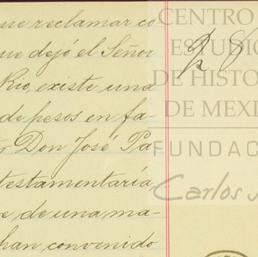 que reclamar co
que dejó el Señor
Rio, existe una
de pesos en fa
Don José Pa
testamentaría
de una ma
han convenido
CENTRO
ESTUDIO
DE HISTO
DE MEXI
FUNDAC
Carlos